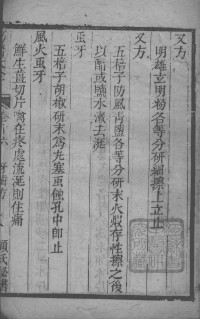 又方
明雄玄明粉各等分研細擦上立止
又方
五棓子防風青鹽各等分研末火煅存性擦之後
以醋或鹽水漱去涎
虫牙
五棓子胡椒研末為丸塞虫蝕孔中即止
風火虫牙
鮮生薑切片噙在疼處流涎則住痛